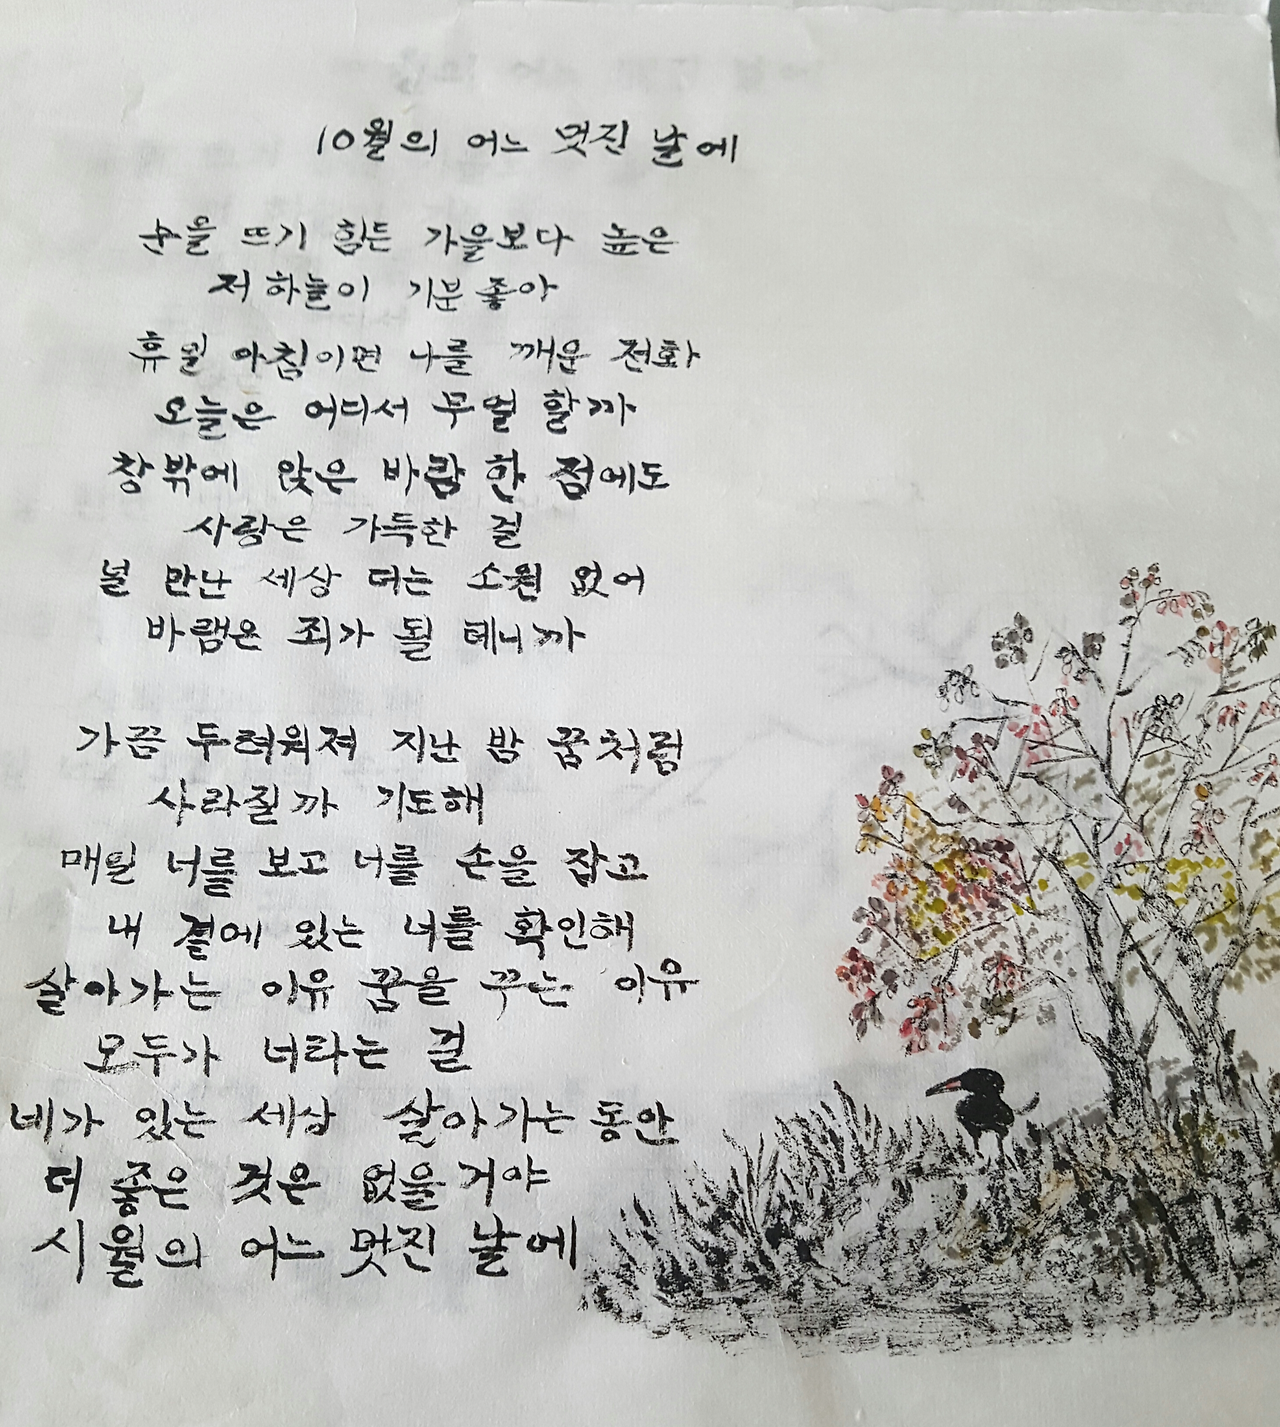 10월의 어느 멋진 날에
눈을 뜨기 힘든 가을보다 높은
저 하늘이 기분 좋아
휴일 아침이면 나를 깨운 전화
오늘은 어디서 무얼 할까
창밖에 앉은 바람 한 점에도
사랑은 가득한 걸
널 만난 세상 더는 소원 없어
바램은 죄가 될 테니까
가끔 두려워져 지난 밤 꿈처럼
사라질까 기도해
매일 너를 보고 너를 손을 잡고
내 곁에 있는 너를 확인해
살아가는 이유 꿈을 꾸는 이유
모두가 너라는 걸
네가 있는 세상 살아가는 동안
더 좋은 것은 없을 거야
시월의 어느 멋진 날에